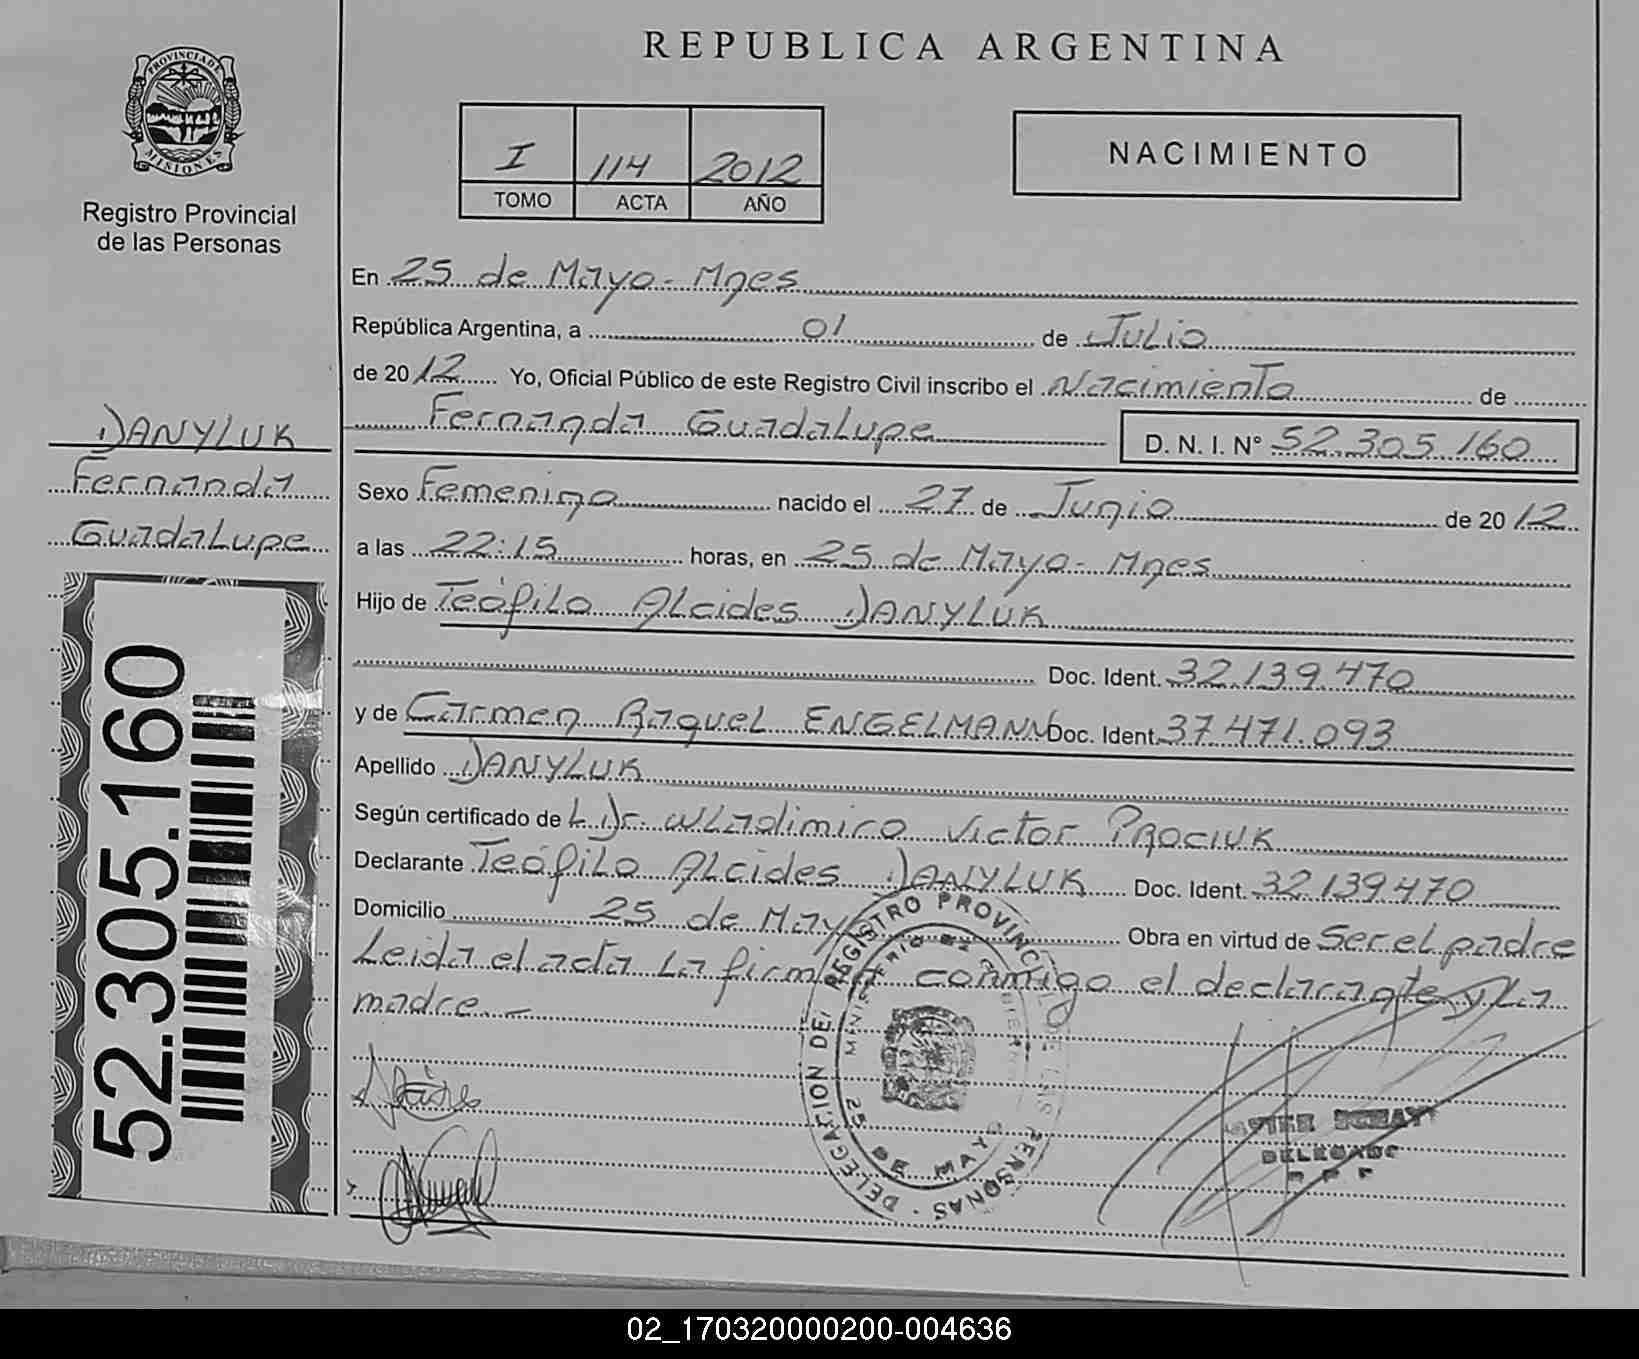 REPUBLICA ARGENTINA
PROVINCIA DE
MISIONES
Registro Provincial
de las Personas
I 114 2012
TOMO ACTA AÑO
NACIMIENTO
En 25 de Mayo - Mnes
República Argentina, a 01 de Julio
de 2012 Yo, Oficial Público de este Registro Civil inscribo el Nacimiento de
Fernanda Guadalupe D. N. I. N° 52.305.160
Sexo Femenino nacido el 27 de Junio de 2012
a las 22:15 horas, en 25 de Mayo - Mnes
Hijo de Teófilo Alcides DANYLUK
Doc. Ident. 32.139.470
y de Carmen Raquel ENGELMANN Doc. Ident. 37.471.093
Apellido DANYLUK
Según certificado de L. Dr. Wladimiro Victor PROCIUK
Declarante Teófilo Alcides DANYLUK Doc. Ident. 32.139.470
Domicilio 25 de May Obra en virtud de Ser el padre
Leida el acta la firman conmigo el declarante y la
madre. -
DANYLUK
Fernanda
Guadalupe
52.305.160
DELEGACION DEL REGISTRO PROVINCIAL DE LAS PERSONAS
25 DE MAYO
DELEGADO
02_170320000200-004636